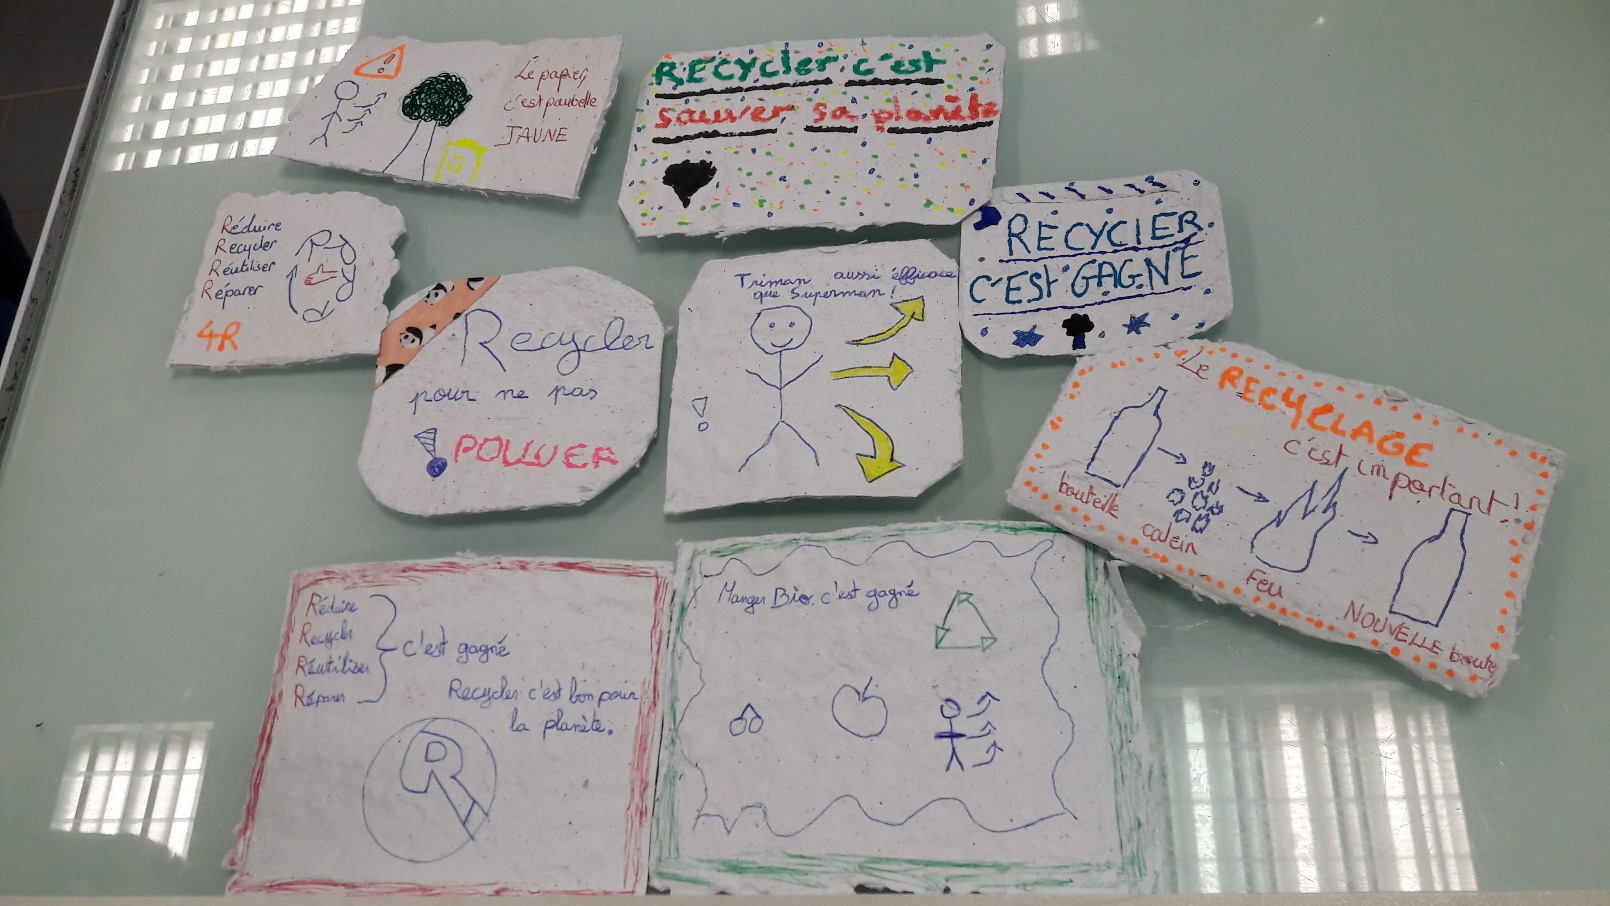 Le papier,
c'est poubelle
JAUNE
RECycler c'est
sauver sa planète
Réduire
Recycler
Réutiliser
Réparer
4R
Recycler
pour ne pas
! POLLUER
Triman aussi éfficace
que Superman !
!
RECYCLER
C'EST GAGNÉ
Le RECYCLAGE
c'est important !
bouteille
calcin
Feu
NOUVELLE
Réduire
Recycler
Réutiliser
Réparer
c'est gagné
Recycler c'est bon pour
la planète.
R
Manger Bio. c'est gagné